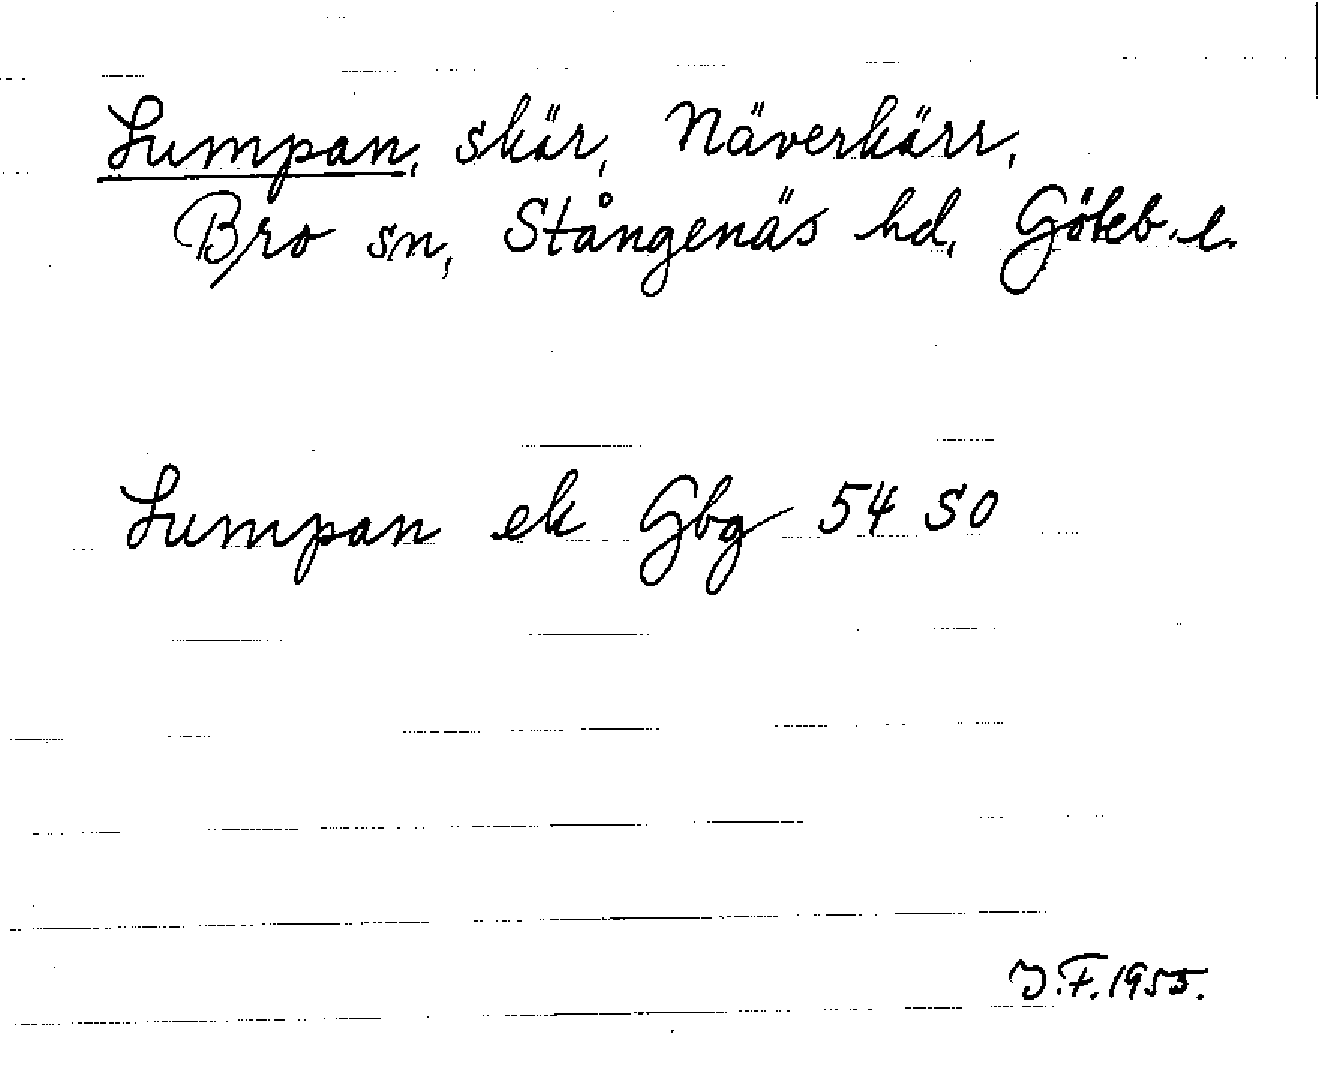 Lumpan, skär, Näverkärr,
Bro sn, Stångenäs hd, Göteb. l.
Lumpan ek Gbg 54 SO
J.F. 1955.